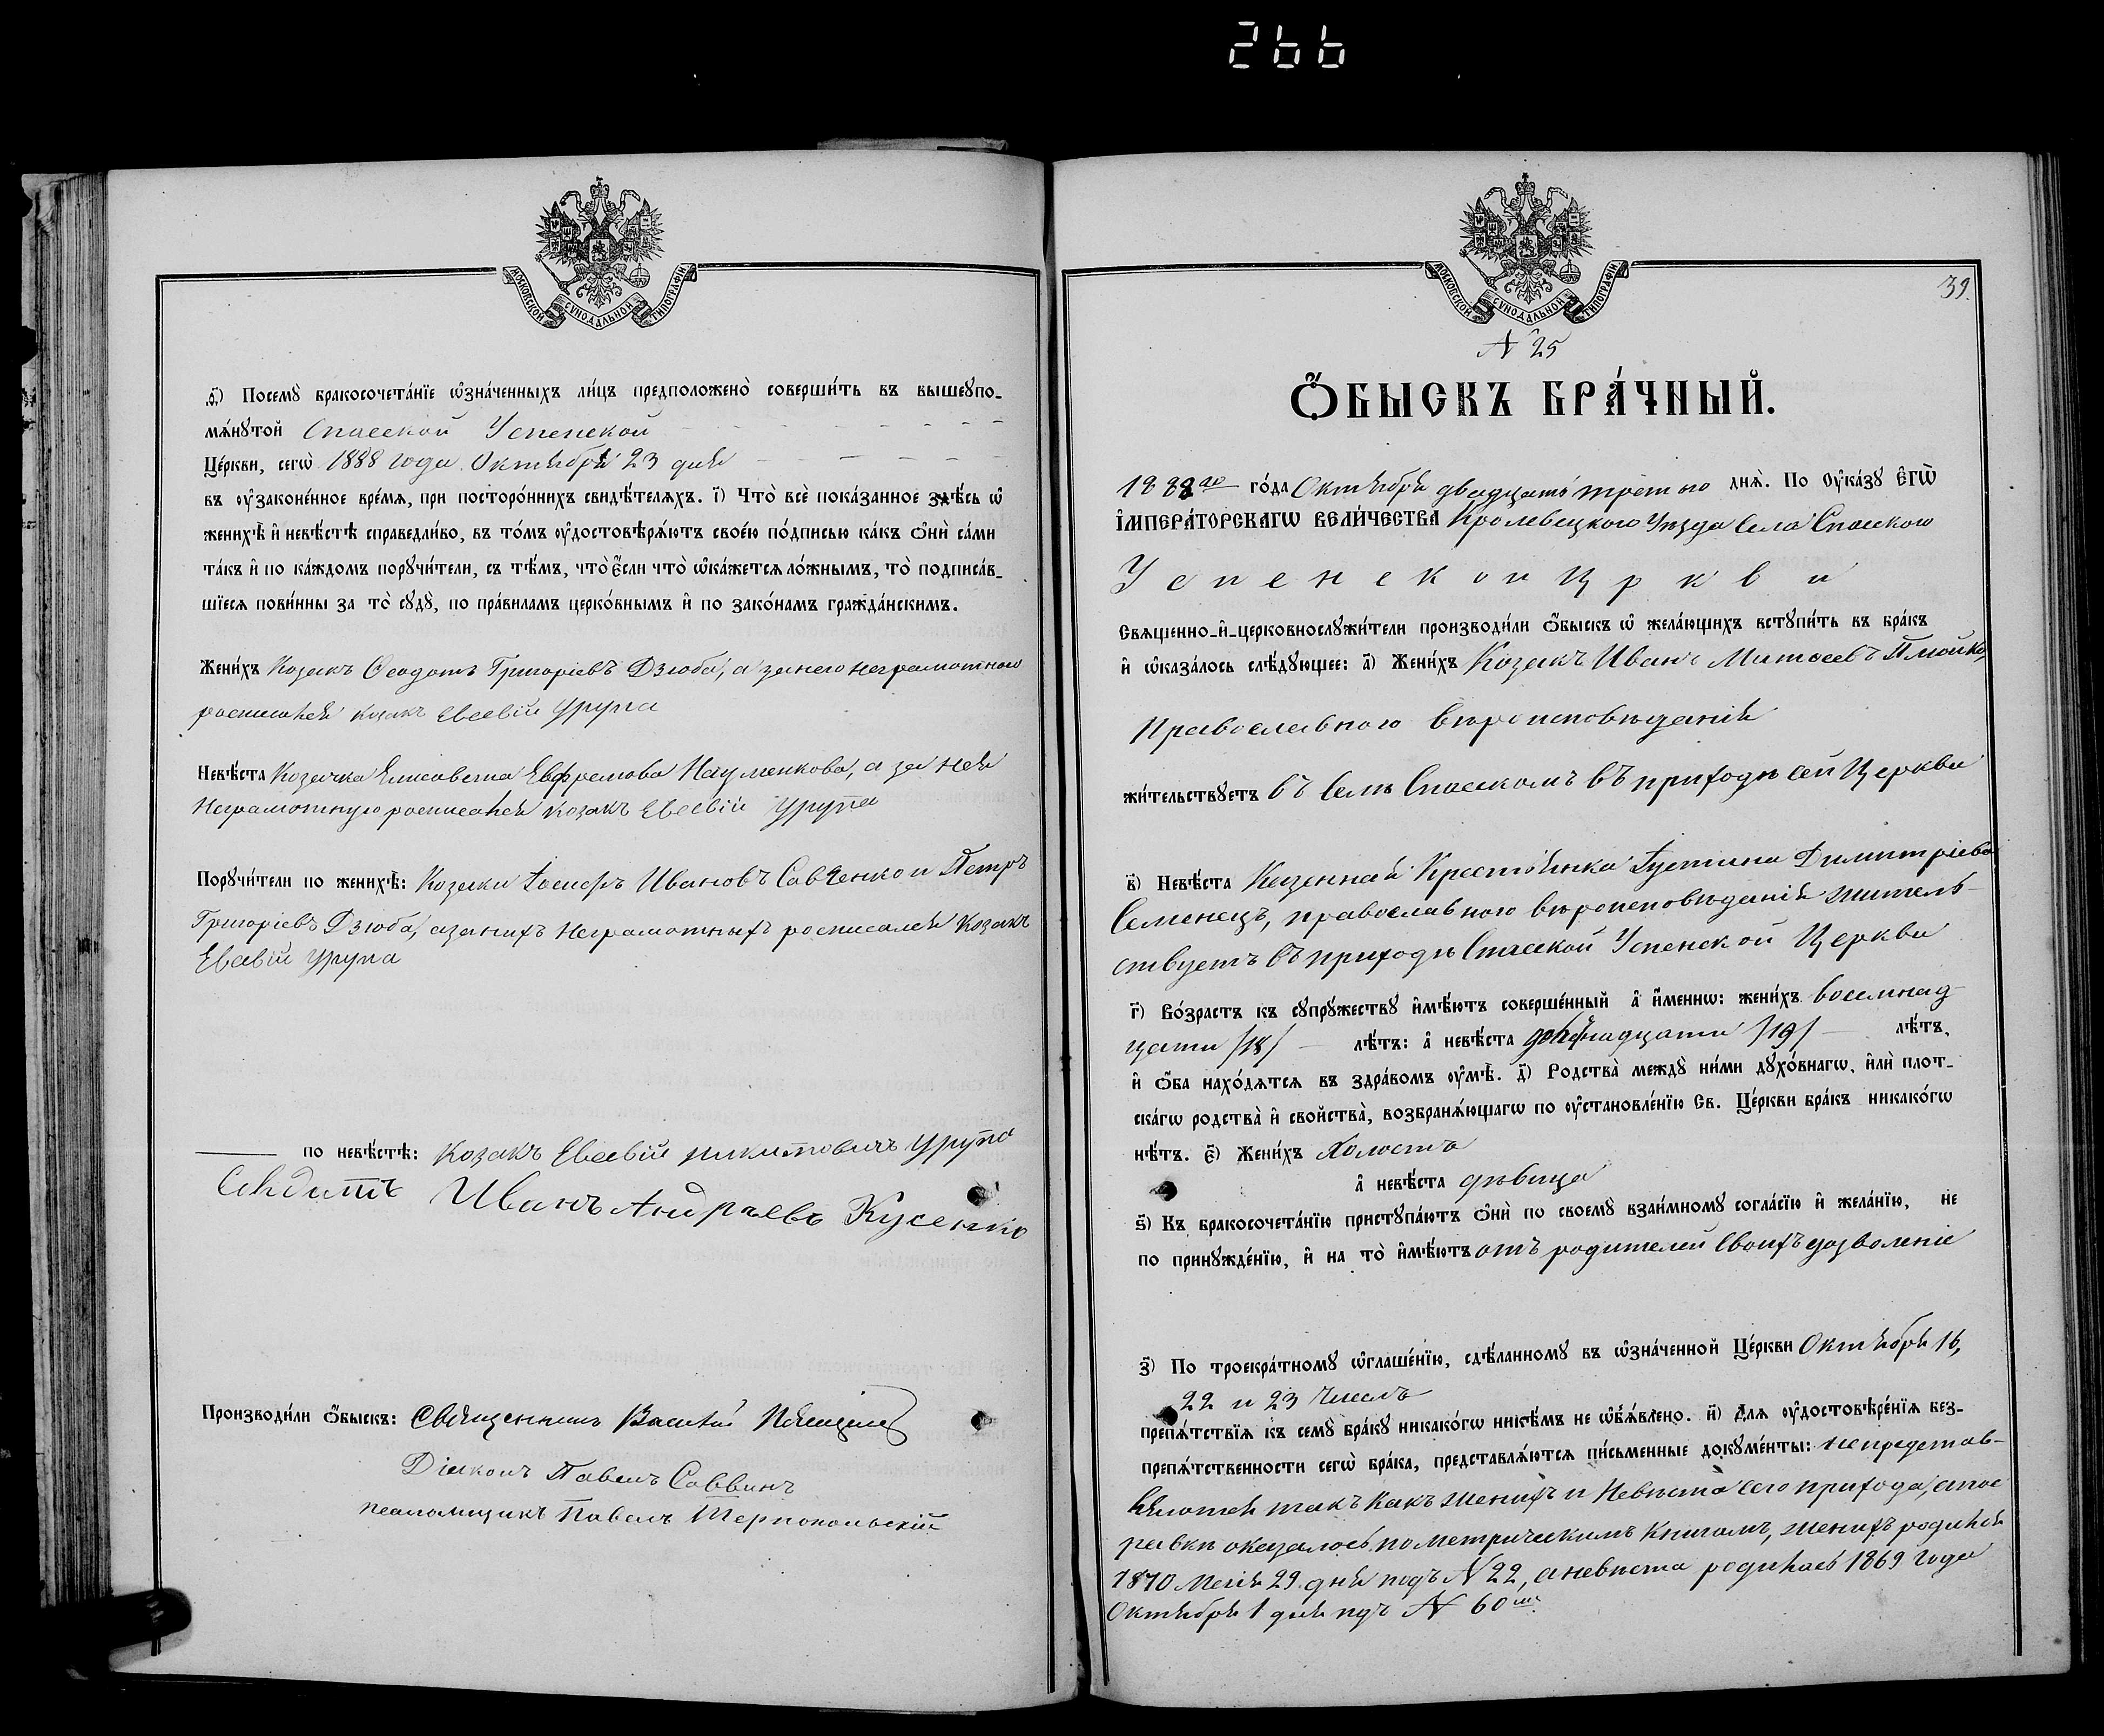 266
МОСКОВСКОЙ СУНОДАЛЬНОЙ ТИПОГРАФІИ
ѳ҃) Посемꙋ̀ бракосочета́нїе ѡ҆зна́ченныхъ ли́цъ предположено̀ соверши́ть въ вышеꙋпо-
мѧ́нꙋтой Спасской Успенской
Це́ркви, сегѡ̀ 1888 года Октября 23 дня
въ ᲂу҆законе́нное вре́мѧ, при посторо́ннихъ свидѣ́телѧхъ. і҃) Что̀ всѐ пока́занное здѣ́сь ѡ҆
женихѣ̀ и҆ невѣ́стѣ справедли́во, въ то́мъ ᲂу҆достовѣрѧ́ютъ свое́ю по́дписью ка́къ ѻ҆нѝ са́ми
та́къ и҆ по ка́ждомъ порꙋчи́тели, съ тѣ́мъ, что̀ є҆́сли что̀ ѡ҆ка́жетсѧ ло́жнымъ, то̀ подписа́в-
шїесѧ пови́нны за то̀ сꙋдꙋ̀, по пра́виламъ церко́внымъ и҆ по зако́намъ гражда́нскимъ.
Жени́хъ Козакъ Ѳеодотъ Григоріевъ Дзюба, а за него неграмотного
росписался козакъ Евсевій Урупа
Невѣ́ста Козачка Елисавета Евфремова Науменкова, а за нея
неграмотную росписался козакъ Евсевій Урупа
Порꙋчи́тели по женихѣ̀: Козаки Іосифъ Ивановъ Савченко и Петръ
Григоріевъ Дзюба, а за нихъ неграмотныхъ росписался козакъ
Евсевій Урупа
по невѣ́стѣ: Козакъ Евсевій Никитовичъ Урупа
Иванъ Андреевъ Кусенко
Производи́ли ѻ҆́быскъ: Священникъ Василій
Діаконъ Павелъ Саввинъ
псаломщикъ Павелъ Тернопольскій
МОСКОВСКОЙ СУНОДАЛЬНОЙ ТИПОГРАФІИ
39.
№ 25
Ѻ҆́БЫСКЪ БРА́ЧНЫЙ.
1888го го́да Октября двадцать третьго днѧ̀. По ᲂу҆ка́зꙋ Є҆ГѠ̀
І҆МПЕРА́ТОРСКАГѠ ВЕЛИ́ЧЕСТВА Кролевецкого Уѣзда Села Спасского
Успенской Цркви
Свѧщенно-и҆-церковнослꙋжи́тели производи́ли ѻ҆́быскъ ѡ҆ жела́ющихъ встꙋпи́ть въ бра́къ
и҆ ѡ҆каза́лось слѣ́дꙋющее: а҃) Жени́хъ Козакъ Иванъ Матѳеевъ
Православного вѣроисповѣданія
жи́тельствꙋетъ въ Селѣ Спасскомъ въ приходѣ сей Церкви
в҃) Невѣ́ста Казенная Крестьянка Іустина Димитріева
Семенецъ, православного вѣроисповѣданія житель-
ствуетъ въ приходѣ Спасской Успенской Церкви
г҃) Во́зрастъ къ сꙋпрꙋ́жествꙋ и҆мѣ́ютъ соверше́нный а҆ и҆́меннѡ: жени́хъ восемнад
цати /18/ лѣ́тъ: а҆ невѣ́ста девятнадцати /19/ лѣ́тъ,
и҆ ѻ҆́ба нахо́дѧтсѧ въ здра́вомъ ᲂу҆мѣ̀. д҃) Родства̀ междꙋ̀ ни́ми дꙋхо́внагѡ, и҆лѝ плот-
ска́гѡ родства̀ и҆ свойства̀, возбранѧ́ющагѡ по ᲂу҆становле́нїю Св. Це́ркви бра́къ никако́гѡ
нѣ́тъ. є҃) Жени́хъ Холостъ
а҆ невѣ́ста дѣвица
ѕ҃) Къ бракосочета́нїю пристꙋпа́ютъ ѻ҆нѝ по своемꙋ̀ взаи́мномꙋ согла́сїю и҆ жела́нїю, не
по принꙋжде́нїю, и҆ на то̀ и҆мѣ́ютъ отъ родителей своихъ дозволеніе
з҃) По троекра́тномꙋ ѡ҆глаше́нїю, сдѣ́ланномꙋ въ ѡ҆зна́ченной Це́ркви Октября 16,
22 и 23 числъ
препѧ́тствїѧ къ семꙋ̀ бра́кꙋ никако́гѡ никѣ́мъ не ѡ҆б̾ѧ́влено. и҃) Длѧ ᲂу҆достовѣре́нїѧ без-
препѧ́тственности сегѡ̀ бра́ка, представлѧ́ютсѧ пи́сьменные докꙋме́нты: не представ-
ляются такъ какъ женихъ и невѣста сего прихода, а по с
равкѣ оказалось по метрическимъ книгамъ, женихъ родился
1870 Мая 29 дня подъ № 22, а невѣста родилась 1869 года
Октября 1 дня подъ № 60мъ.